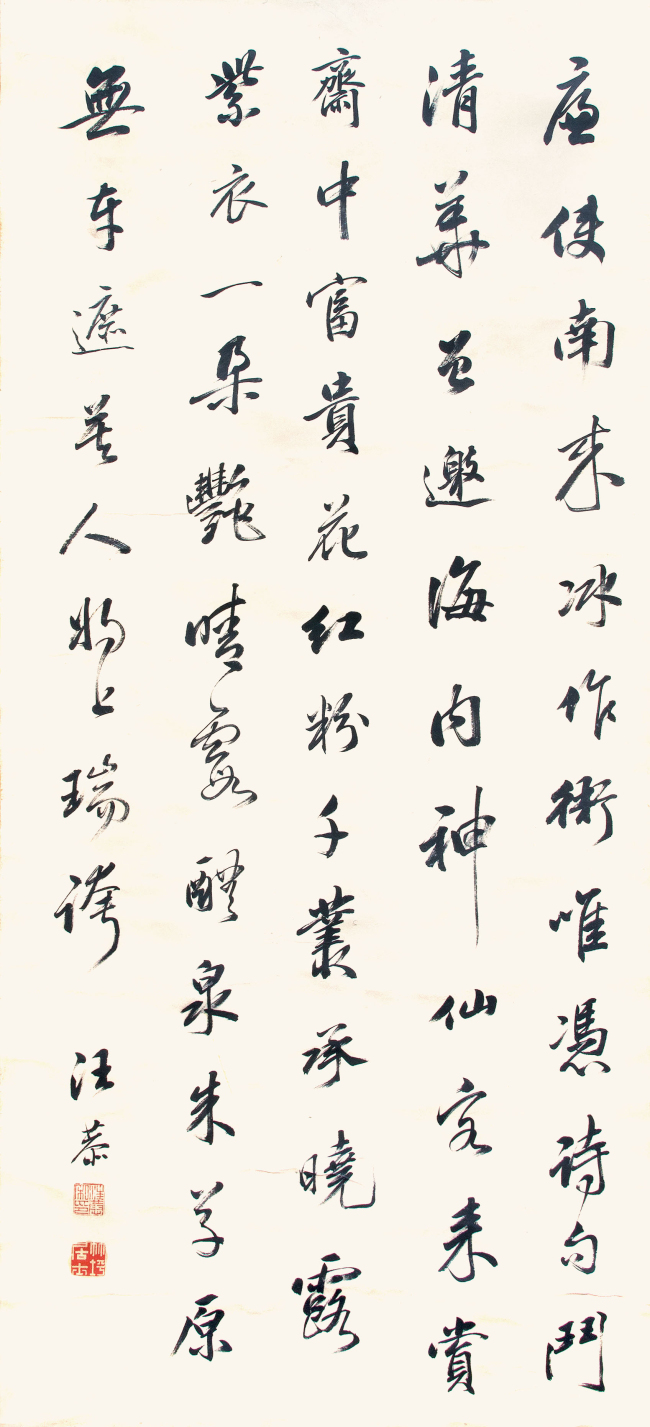 廉使南来冰作術唯憑詩句鬥
清華曾邀海内神仙客来賞
齋中富貴花红粉千叢承曉露
紫衣一朵艷晴霞醴泉朱草原
無車遮莫人将上瑞誇
汪恭